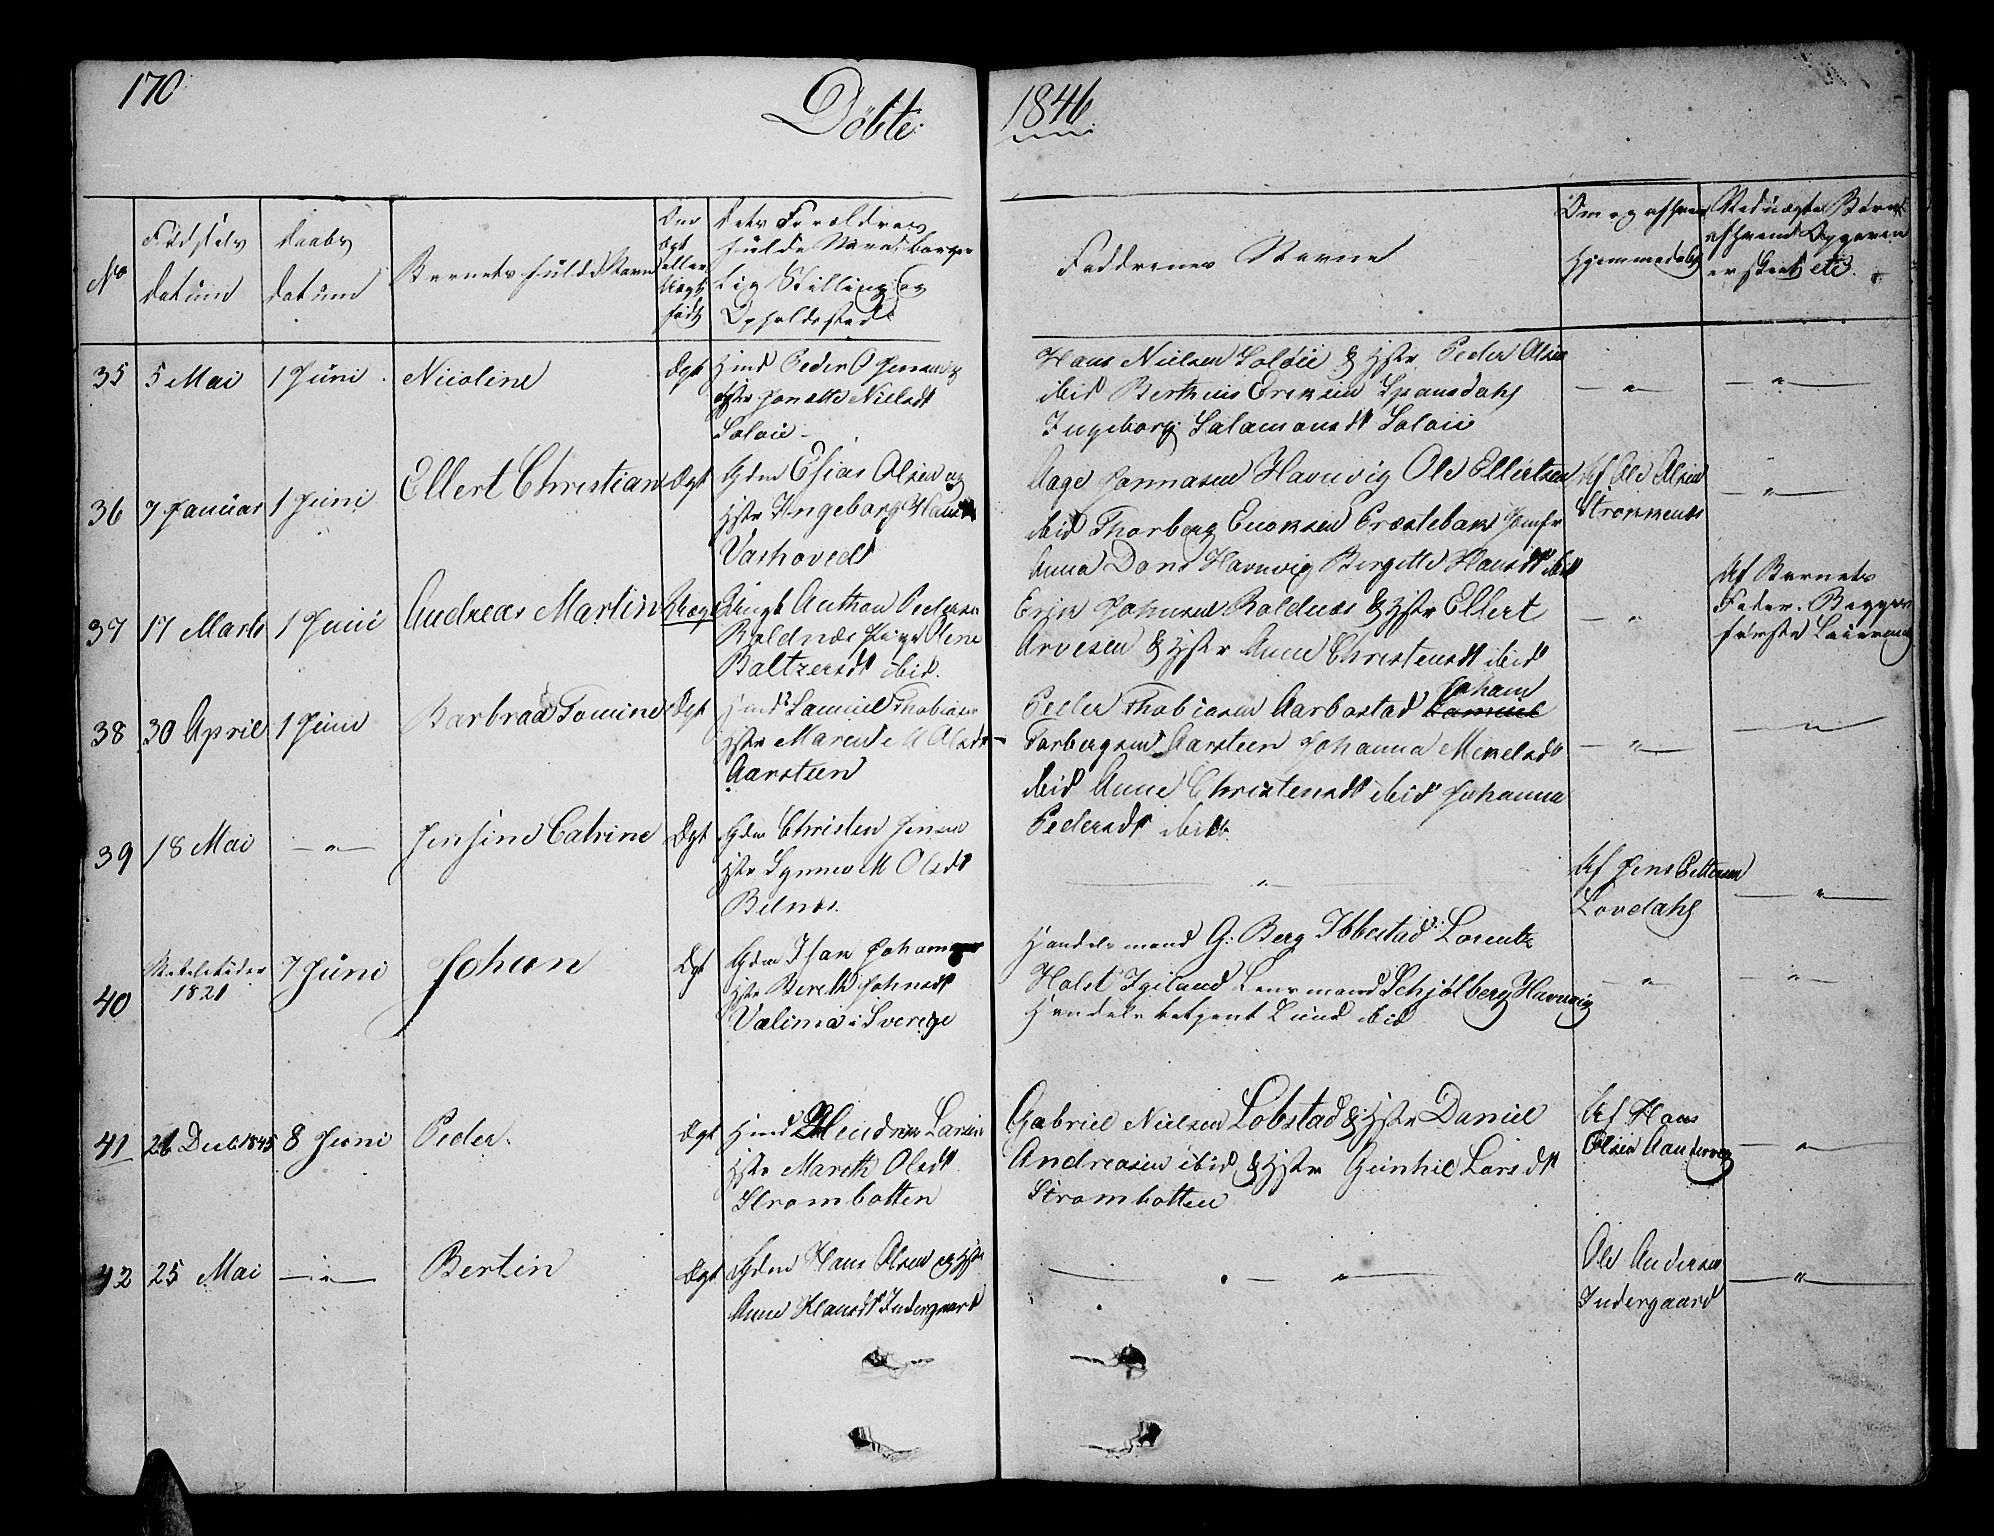 170
Döbte
1846
No
Födsels
datum
Daabs
datum
Barnets fulde Navn
Om
Ægt
eller
Uægt
født
Dets Forældres
fulde Navn borger
lig Stilling og
Opholdssted
Faddernes Navne
Om og af hvem
hjemmedøbt
Ved uægte Børn
af hvem Opgaven
er skeet etc.
35 5 Mai 1 Juni Nicoline Ægt
Hmd Peder O Jensen og
Hstr Janetta Nielsdt
Soløie
Hans Nielsen Soløie & Hstr Peder Olsen
ibid Bertheus Eriksen Spansdahl
Ingeborg Salamonsdt Soløii
— " —
— " —
36 7 Januar 1 Juni Ellert Christian Ægt
Gdm Esias Olsen og
Hstr Ingeborg Hansdt
Vashoved
Aage Jonnasen Havnvig Ole Ellertsen
ibid Thorberg Enoksen Præstebak Jomfr
Anna Dons Havnvig Bergitte Hansdt ibid
Af Ole Olsen
Strokkenes
— " —
37 17 Marts 1 Juni Andreas Martin Uægt
Ungk Anthon Pedersen
Boldnæs Pige Olene
Baltzersdt ibid.
Erik Johnsen Boldnæs & Hstr Ellert
Arvesen & Hstr Anne Christensdt ibid
— " —
Af Barnets
Fader. Begges
første Leiermaal
38 30 April 1 Juni Barbraa Tomine Ægt
Hmd Samuel Thobiasen
Hstr Maren M Olsdt
Aarsteen
Peder Thobiasen Aarbostad Samuel Johan
Torbergsen Aarsteen Johanna Mikelsdt
ibid Anne Christensdt ibid Johanna
Pedersdt ibid
— " —
— " —
39 18 Mai — " — Jensine Catrine Ægt
Gdm Christen Jensen
Hstr Synnev M Olsdt
Belnes.
— " —
Af Jens Pettersen
Lovdahl
— " —
40
1821 7 Juni Johan Ægt
Gdm Isak
Hstr Bereth Johnsdt
Valima i Sverige
Handelsmand G: Berg Ibbestad Lorents
Holst Igeland Lensmand Schjølberg Havnvig
Handelsbetjent Lund ibid
— " —
— " —
41 26 Decb 1845 8 Juni Peder. Ægt
Hmd Hendrik Larsen
Hstr Mareth Olsdt
Strombotten
Gabriel Nielsen Lobstad & Hstr Daniel
Andreasen ibid & Hstr Gunhil Larsdt
Strombotten
Af Hans
Olsen Aandervig
— " —
42 25 Mai — " — Bertin Ægt
Gdm Hans Olsen og Hstr
Anne Hansdt Indergaard
— " —
Ole Andersen
Indergaard
— " —